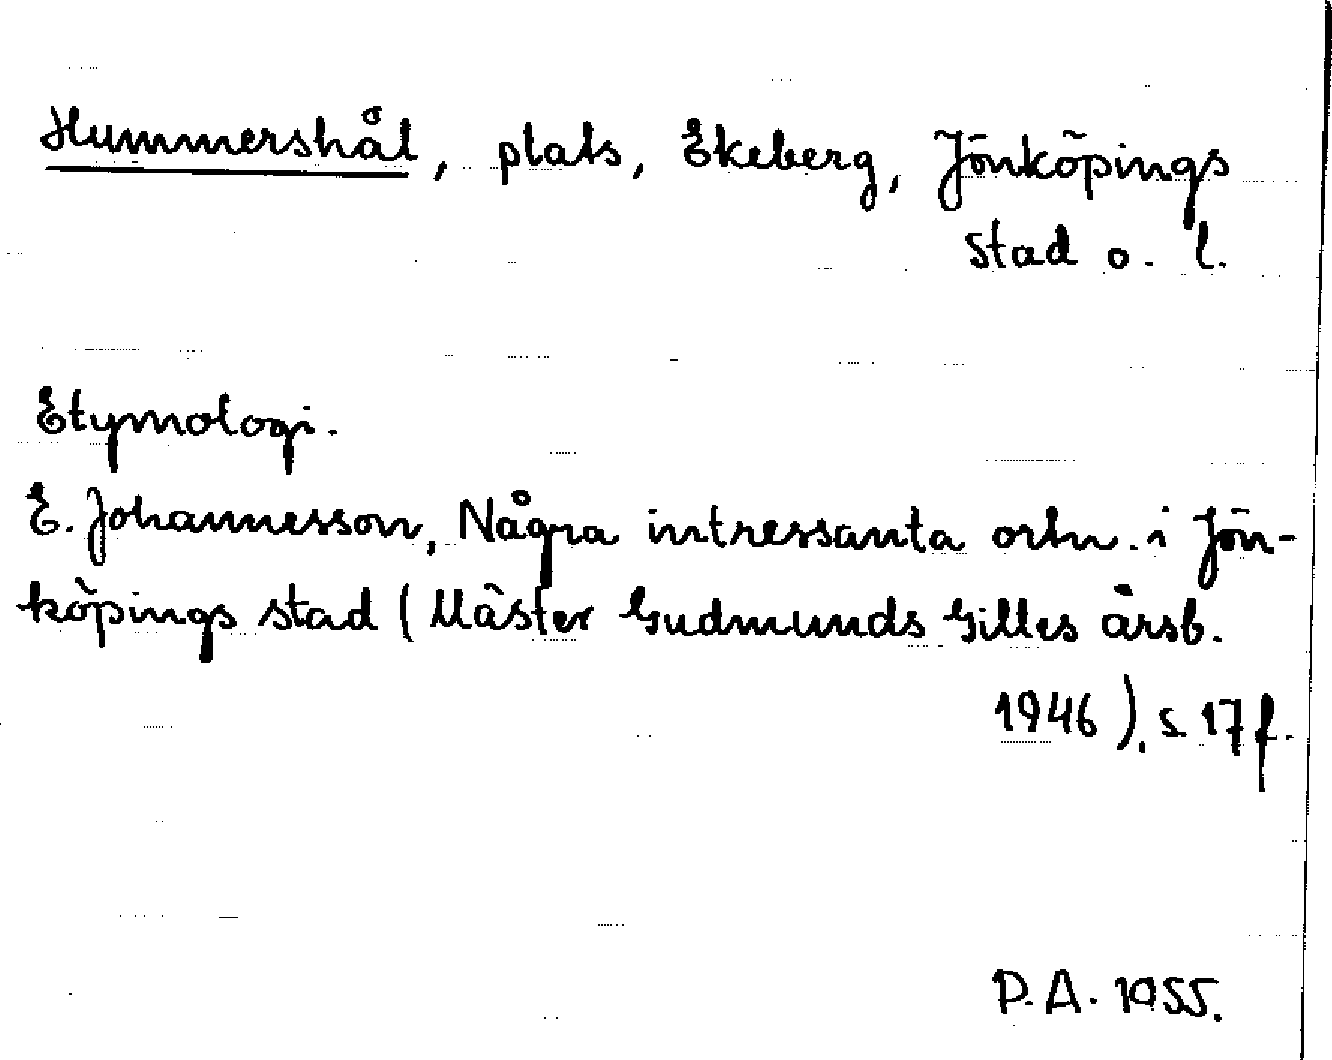 Hummershål, plats, Ekeberg, Jönköpings
stad o. l.
Etymologi.
E. Johannesson, Några intressanta ortn. i Jön-
köpings stad (Mäster Gudmunds Gilles årsb.
1946), s. 17 f.
P. A. 1955.